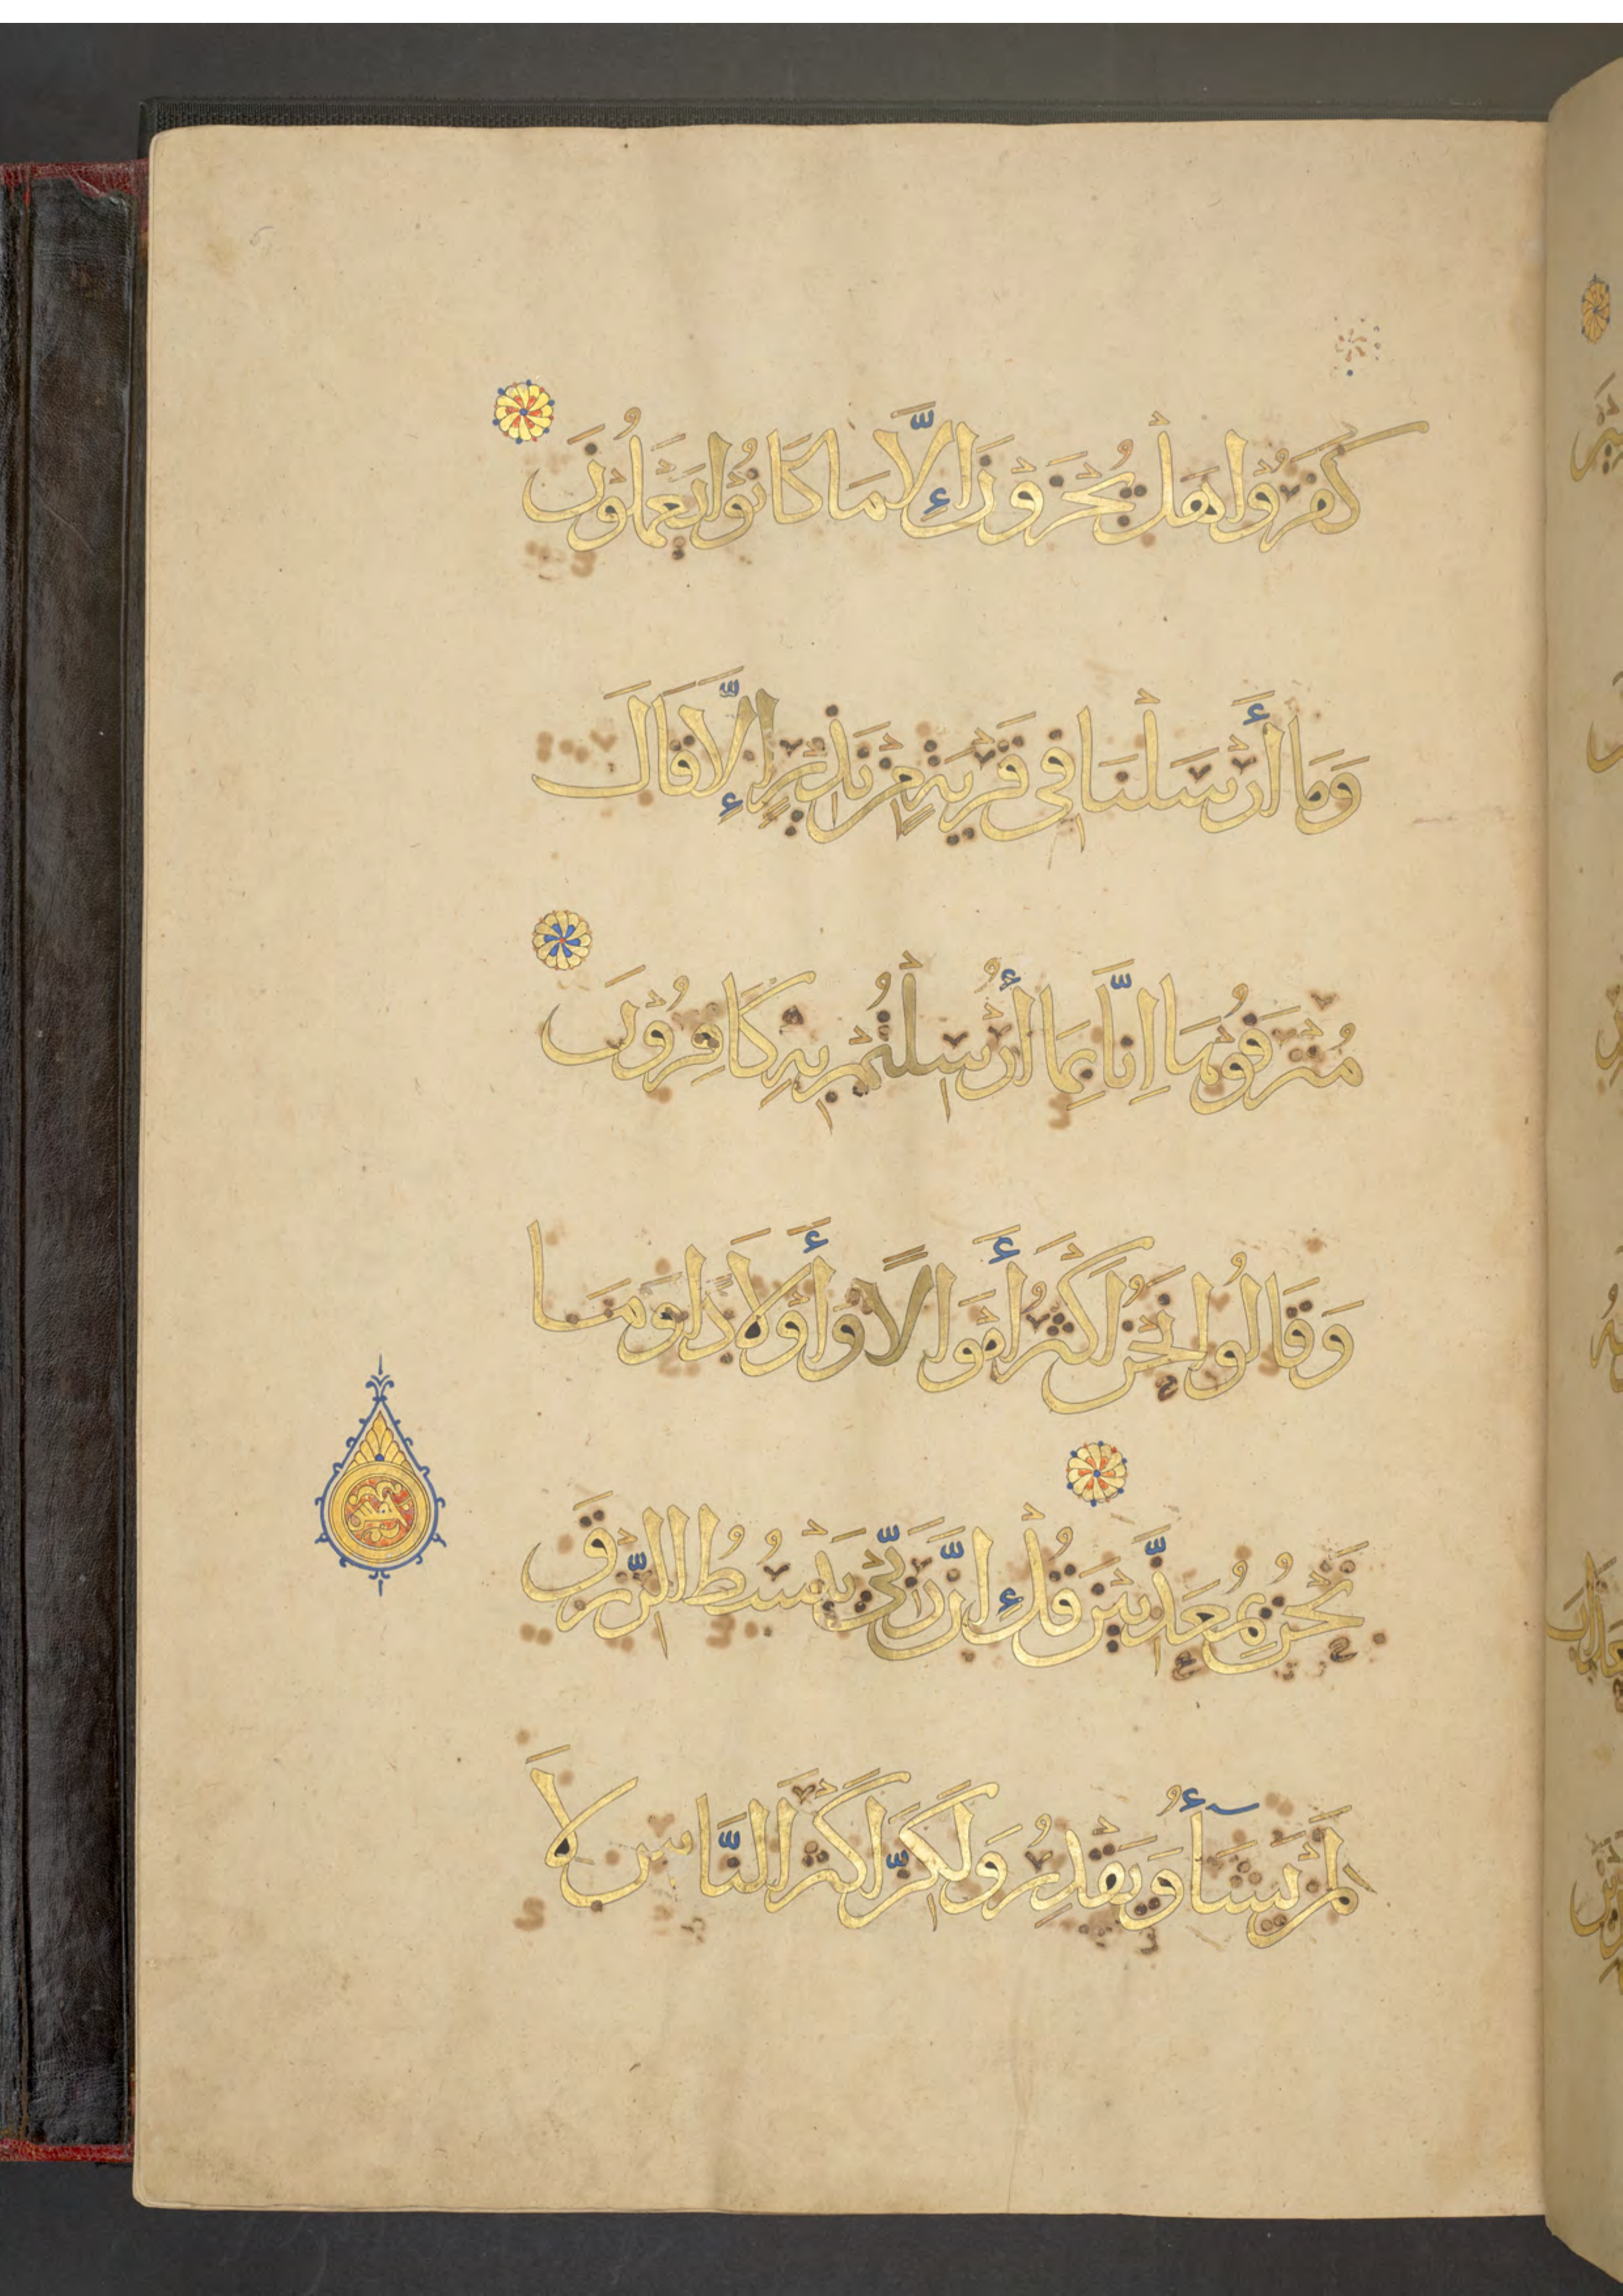 كَفَرُوا هَلْ يُجْزَوْنَ إِلَّا مَا كَانُوا يَعْمَلُونَ
وَمَا أَرْسَلْنَا فِي قَرْيَةٍ مِنْ نَذِيرٍ إِلَّا قَالَ
مُتْرَفُوهَا إِنَّا بِمَا أُرْسِلْتُمْ بِهِ كَافِرُونَ
وَقَالُوا نَحْنُ أَكْثَرُ أَمْوَالًا وَأَوْلَادًا وَمَا
نَحْنُ بِمُعَذَّبِينَ قُلْ إِنَّ رَبِّي يَبْسُطُ الرِّزْقَ
لِمَنْ يَشَآءُ وَيَقْدِرُ وَلَكِنَّ أَكْثَرَ النَّاسِ لَا